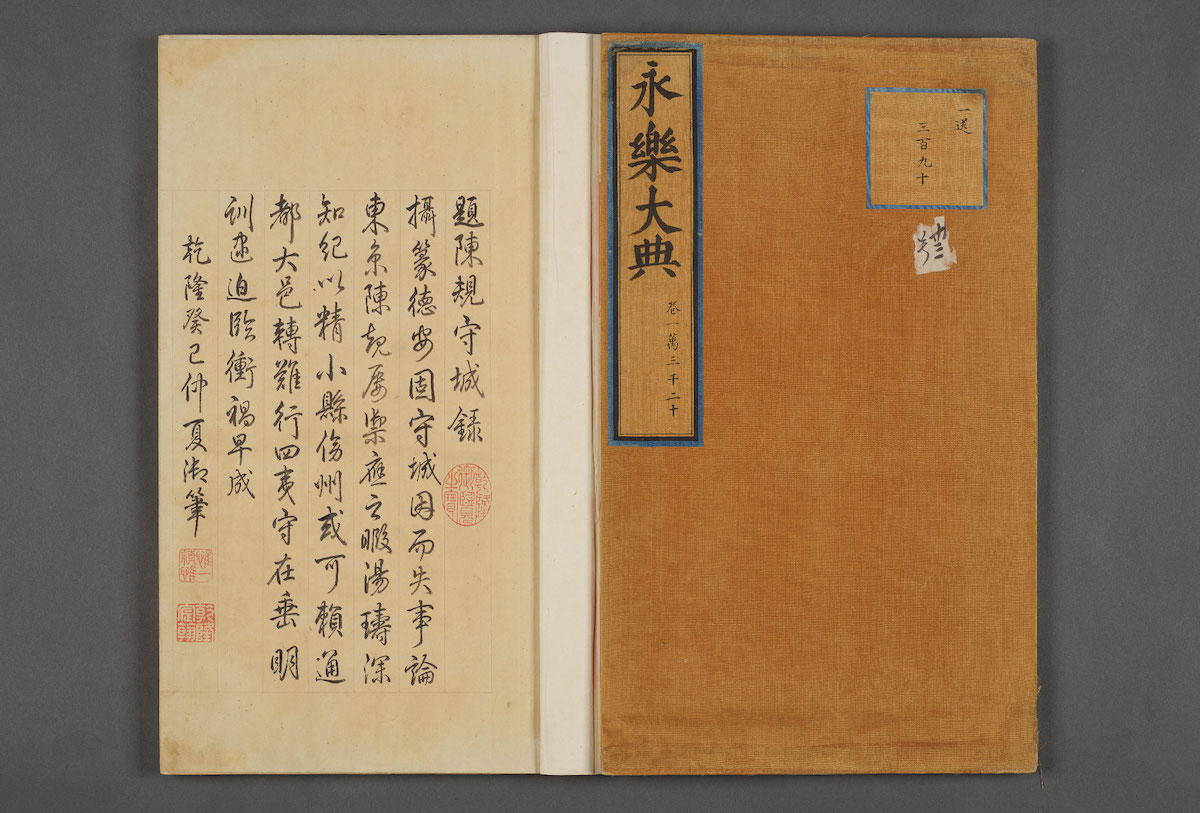 一送
三百九十
永樂大典 卷一萬三千二十
題陳規守城錄
乾隆御覽之寶
攝篆德安固守城因而失事論
東京陳規屡禦應之暇湯璹深
知紀以精小縣傍州或可賴通
都大邑轉難行四夷守在垂明
訓逮迫臨衝禍早成
乾隆癸巳仲夏御筆
惟精惟一
乾隆宸翰